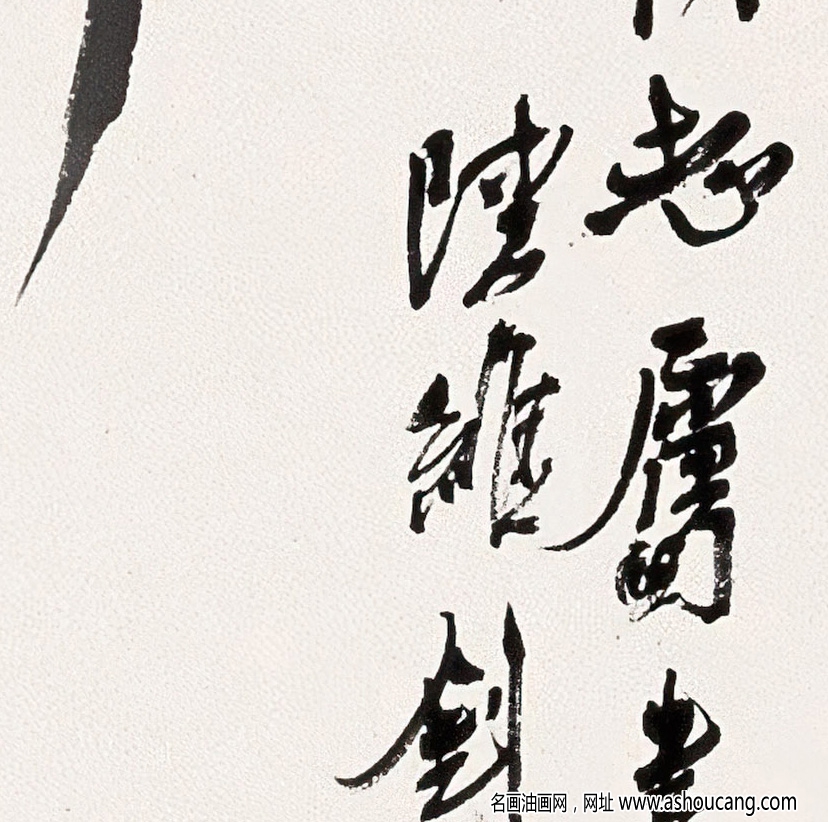 屬書
陸維釗
名画油画网,网址 www.ashoucang.com